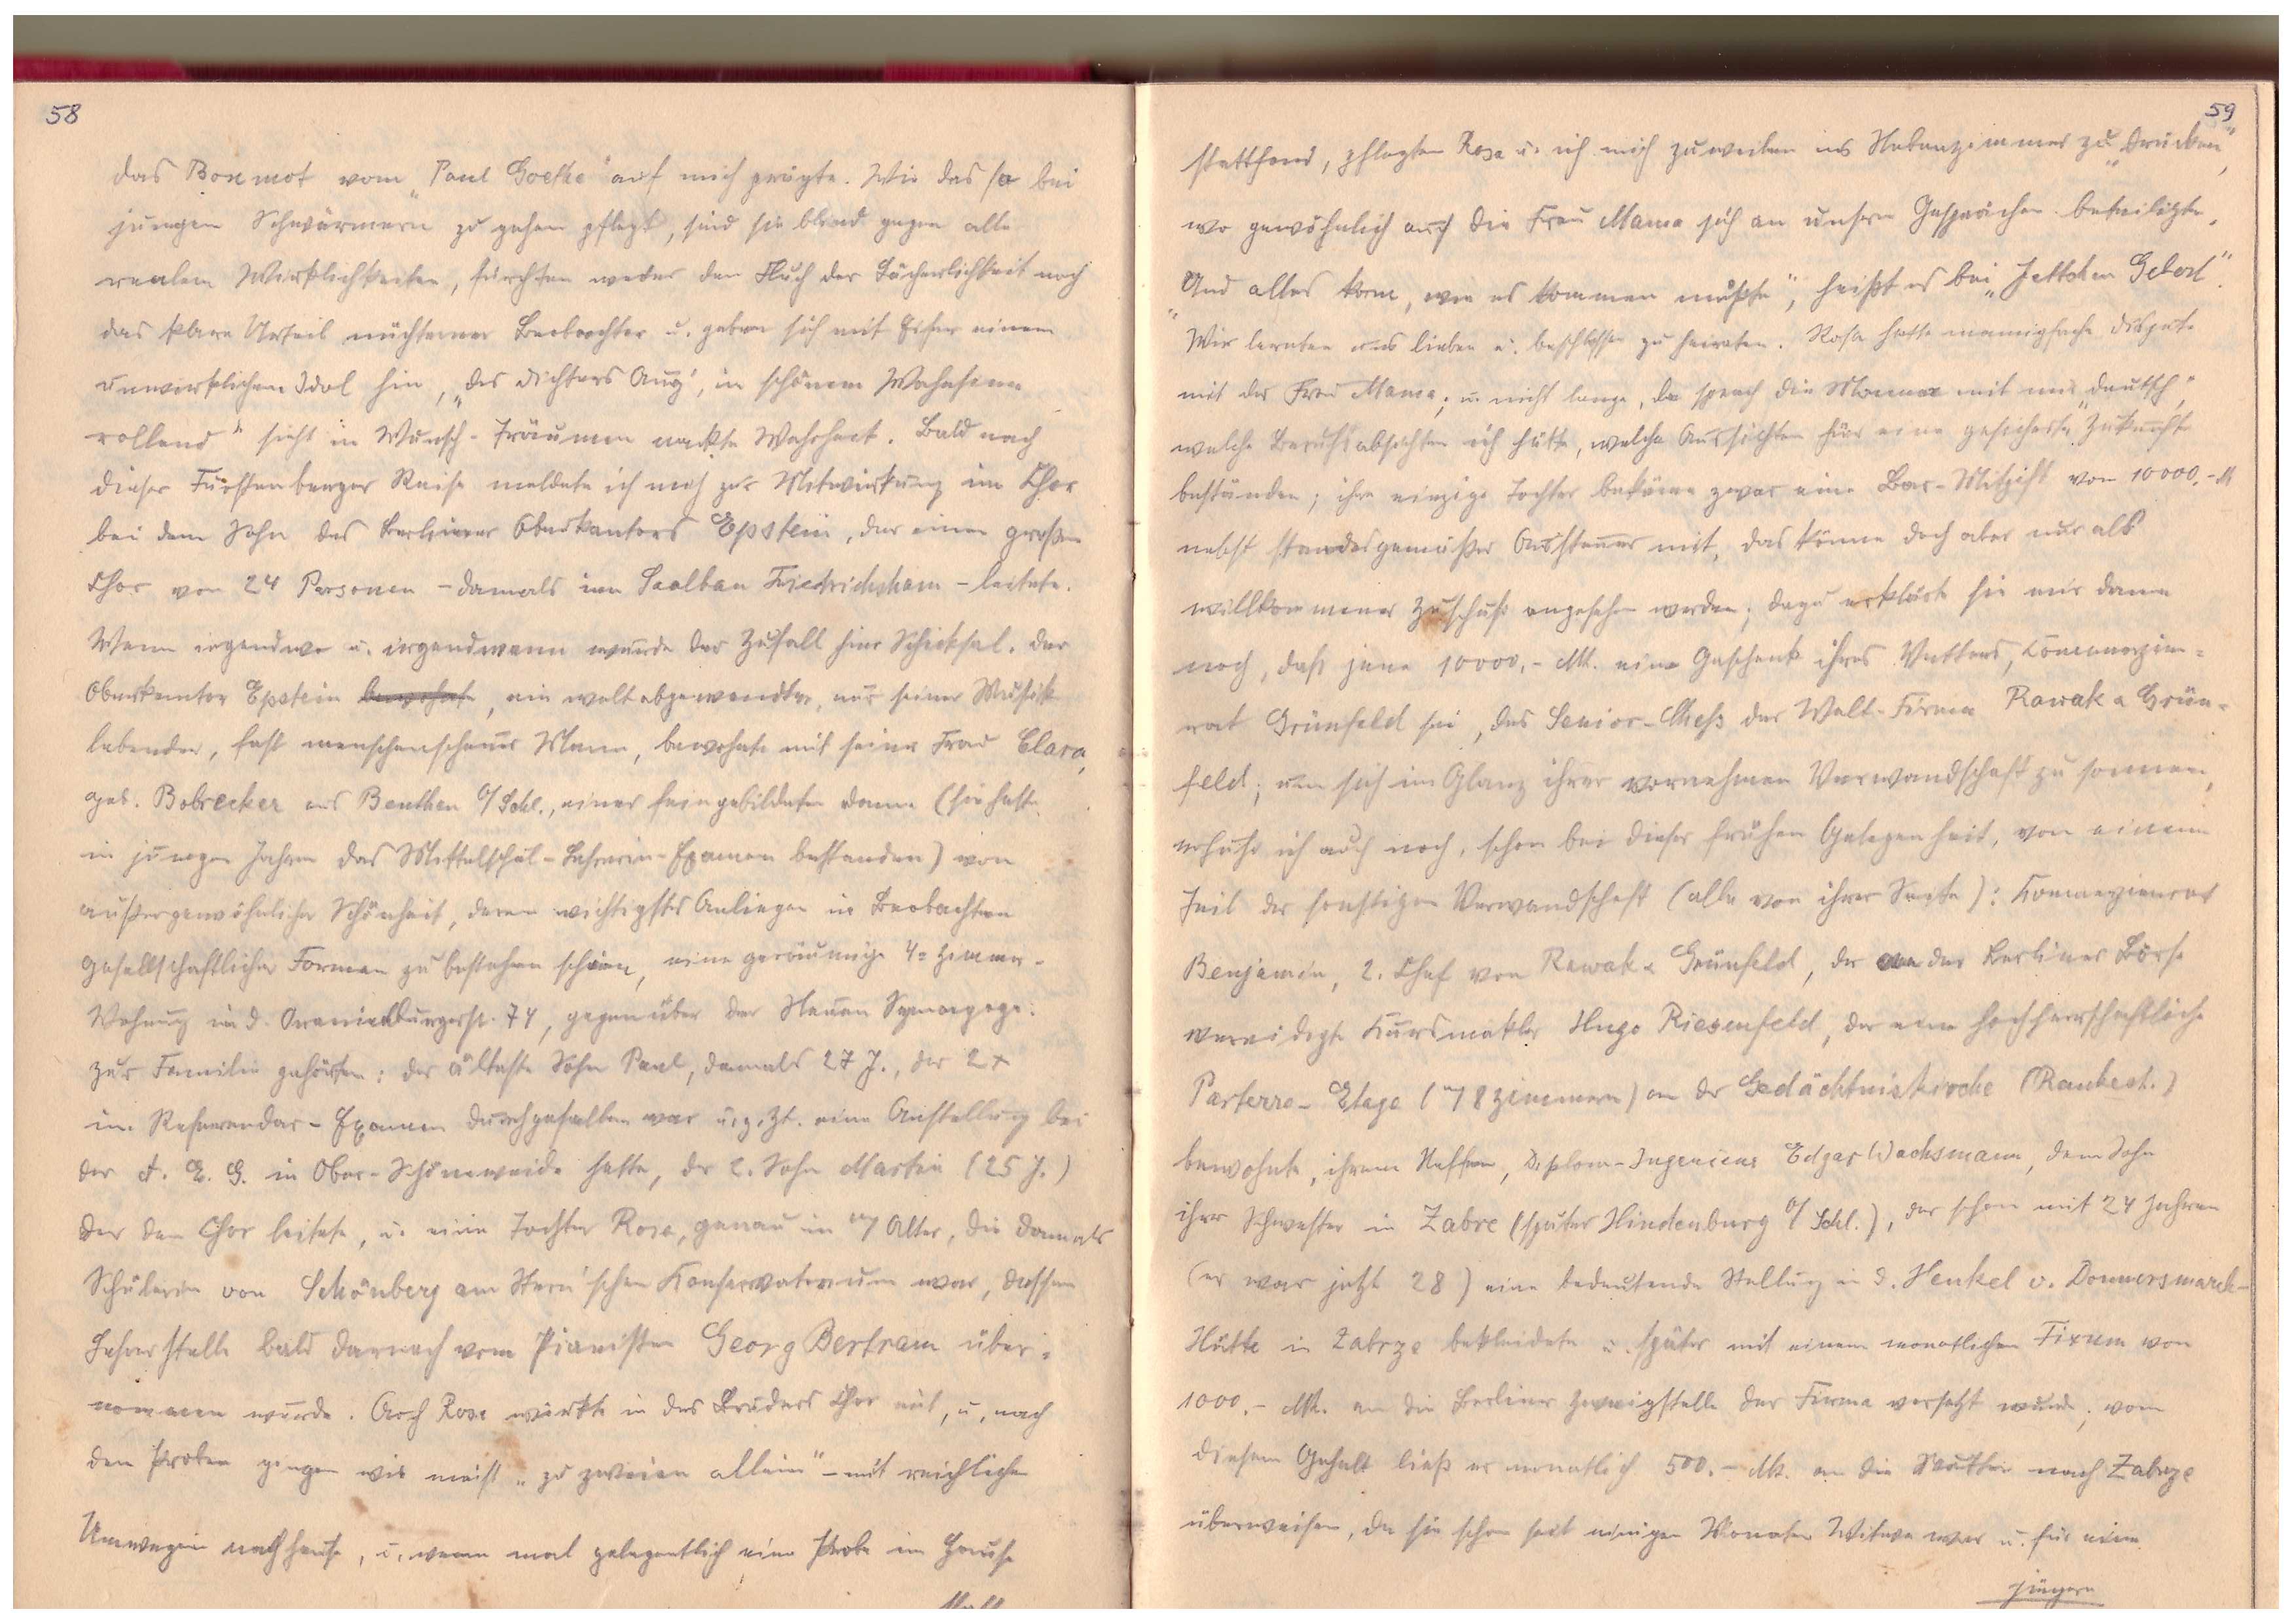 58
das Bonmot vom „Paul Goethe“ auf mich prägte. Wie das so bei
jungen Schwärmern zu gehen pflegt, sind sie blind gegen alle
realen Wirklichkeiten, fürchten weder den Fluch der Lächerlichkeit noch
das klare Urteil nüchterner Beobachter u. geben sich mit Eifer einem
unwirklichen Idol hin, „des Dichters Aug', in schönem Wahnsinn
rollend“ sieht in Wunsch-Träumen nackte Wahrheit. Bald nach
dieser Fürstenberger Reise meldete ich mich zur Mitwirkung im Chor
bei dem Sohn des Berliner Oberkantors Epstein, der einen großen
Chor von 24 Personen – damals im Saalbau Friedrichshain – leitete.
Wenn irgendwo u. irgendwann wurde der Zufall hier Schicksal. Der
Oberkantor Epstein bewohnte, ein weltabgewandter, nur seiner Musik
lebender, fast menschenscheuer Mann, bewohnte mit seiner Frau Clara,
geb. Bobrecker aus Beuthen O/Schl., einer feingebildeten Dame (sie hatte
in jungen Jahren das Mittelschul-Lehrerin-Examen bestanden) von
außergewöhnlicher Schönheit, deren wichtigstes Anliegen im Beobachten
gesellschaftlicher Formen zu bestehen schien, eine geräumige 4=Zimmer-
Wohnung in d. Oranienburgerstr. 74, gegenüber der Neuen Synagoge:
zur Familie gehörten: der älteste Sohn Paul, damals 27 J., der 2 x
im Referendar-Examen durchgefallen war u. z. Zt. eine Anstellung bei
der A. E. G. in Ober-Schöneweide hatte, der 2. Sohn Martin (25 J.)
der den Chor leitete, u. eine Tochter Rosa, genau in m/ Alter, die damals
Schülerin von Schönberg am Stern'schen Konservatorium war, dessen
Lehrerstelle bald darnach vom Pianisten Georg Bertram über=
nommen wurde. Auch Rosa wirkte in des Bruders Chor mit, u. nach
den Proben gingen wir meist „zu zweien allein“ – mit reichlichen
Umwegen nach Hause, u. wenn mal gelegentlich eine Probe im Hause
statt
59
stattfand, pflegten Rosa u. ich mich zuweilen ins Nebenzimmer zu „drücken“,
wo gewöhnlich auch die Frau Mama sich an unsern Gesprächen beteiligte.
„Und alles kam, wie es kommen mußte“, heißt es bei „Jettchen Gebert“.
Wir lernten uns lieben u. beschlossen zu heiraten. Rosa hatte mannigfache Dispute
mit der Frau Mama; u. nicht lange, da sprach die Mama mit mir „deutsch“,
welche Berufsabsichten ich hätte, welche Aussichten für eine „gesicherte“ Zukunft
bestünden; ihre einzige Tochter bekäme zwar eine Bar-Mitgift von 10 000.- M
nebst standesgemäßer Aussteuer mit, das könne doch aber nur als
willkommener Zuschuß angesehen werden; dazu erklärte sie mir dann
noch, daß jene 10000.- Mk. eine Geschenk ihres Vetters, Kommerzien=
rat Grünfeld sei, des Senior-Chefs der Welt-Firma Rawak & Grün=
feld; um sich im Glanz ihrer vornehmen Verwandschaft zu sonnen,
erfuhr ich auch noch, schon bei dieser frühen Gelegenheit, von einem
Teil der sonstigen Verwandschaft (alle von ihrer Seite): Kommerzienrat
Benjamin, 2. Chef von Rawak & Grünfeld, der an der Berliner Börse
vereidigte Kursmakler Hugo Riesenfeld, der eine hochherrschaftliche
Parterre-Etage (m/ 8 Zimmern) an der Gedächtniskirche (Rankestr.)
bewohnte, ihrem Neffen, Diplom-Ingenieur Edgar Wachsmann, dem Sohn
ihrer Schwester in Zabre (später Hindenburg O/Schl.), der schon mit 24 Jahren
(er war jetzt 28) eine bedeutende Stellung in d. Henkel v. Donnersmarck-
Hütte in Zabrze bekleidete u. später mit einem monatlichen Fixum von
1000.- Mk. an die Berliner Zweigstelle der Firma versetzt wurde; von
diesem Gehalt ließ er monatlich 500.- Mk. an die Mutter nach Zabrze
überweisen, da sie schon seit einigen Monaten Witwe war u. für einen
jüngern